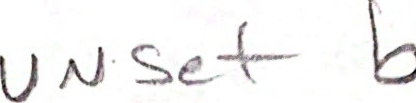 UNSet b